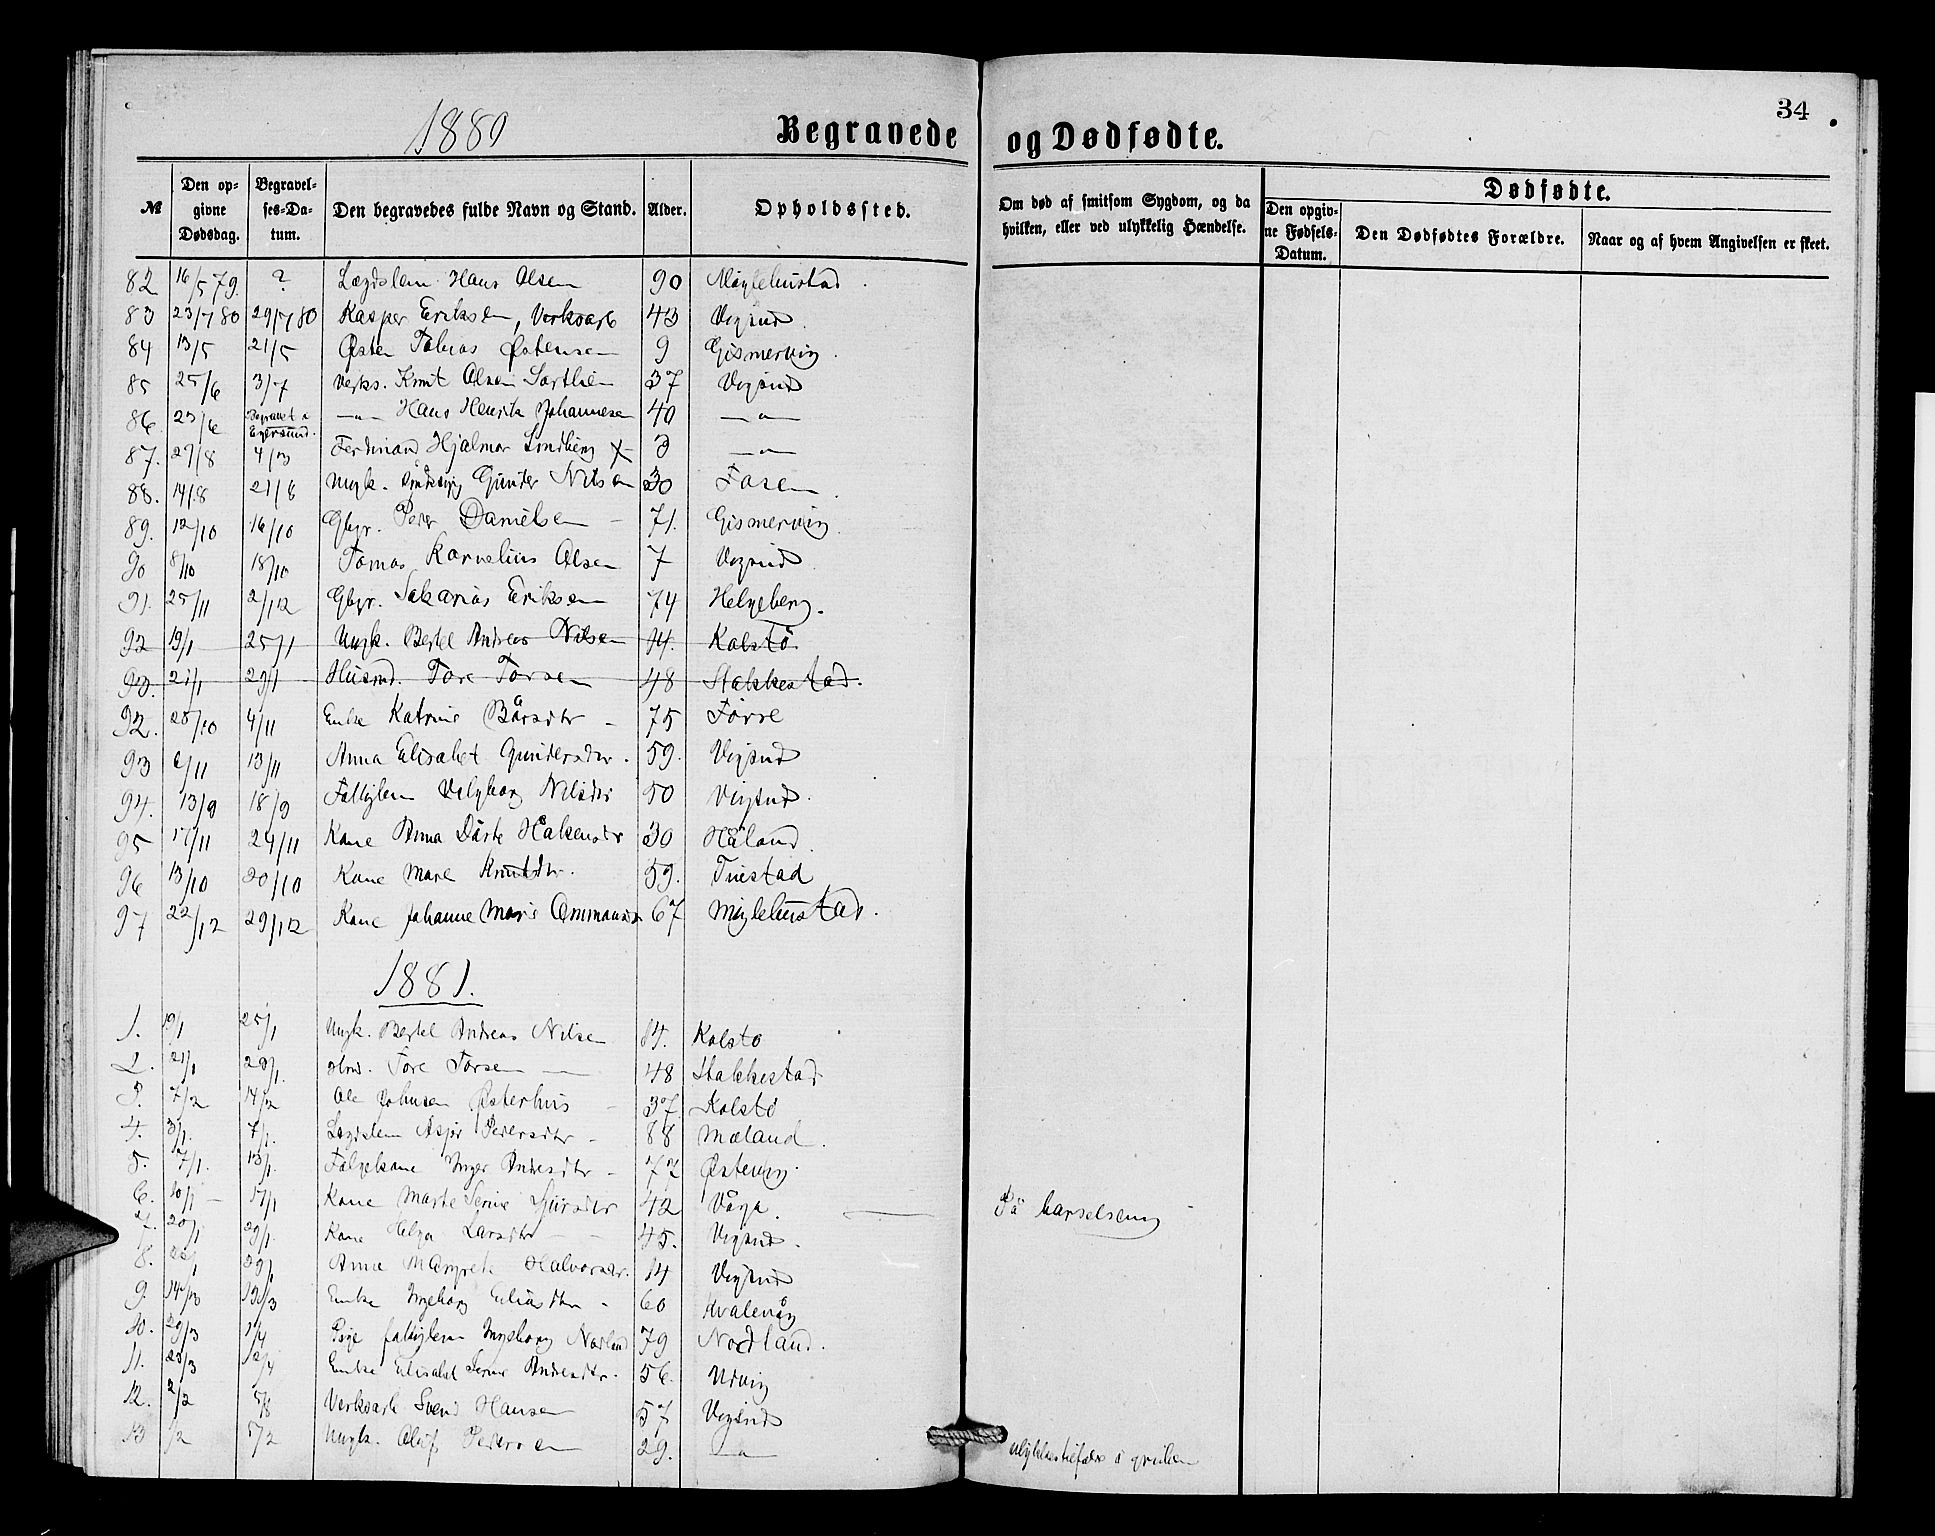 34
1880 Begravede og Dødfødte.
№ Den opgivne Dødsdag. Begravelses-Datum. Den begravedes fulde Navn og Stand. Alder. Opholdssted. Om død af smitsom Sygdom, og da hvilken, eller ved ulykkelig Hændelse. Dødfødte. Den opgivne Fødsels-Datum. Den Dødfødtes Forældre. Naar og af hvem Angivelsen er skeet.
82 16/5 79. ? Lægdslem Hans Olsen 90
83 23/7 80 29/7 80 Kasper Eriksen, Verksarb 43 Vigsnd
84 13/5 21/5 Østen Tobias Østensen 9 Gismervig.
85 25/6 3/7 Verks. Knut Olsen 37 Vigsnd
86. 23/6 Begravet i Egersund. —"— Hans Henrik Johannesen 40 —"—
87. 29/8 4/ Ferdinand Hjalmar Lindberg X 3 —"—
88. 14/8 21/8 Ungk. Gunder Nilsen 30 Fosen.
89. 12/10 16/10 Gbgr. Peder Danielsen – 71. Gismervig
90 8/10 18/10 Tomas Kornelius Olsen 7 Vigsnd
91. 25/11 2/12 Gbgr. Sakarias Eriksen 74 Helgeberg.
92 19/1 25/1 Ungk. Bertel Andreas Nilsen 14. Kolstø
93. 21/1 29/1 Husmd. Tore Torsen 48 Stakkestad.
92. 28/10 4/11 Enke Katrine Bårsdtr – 75 Førre
93 6/11 13/11 Anna Elisabet Gundersdtr. 59. Vigsnd
94. 13/9 18/9 Fattiglem Valgborg Nilsdtr 50 Vigsnd.
95 17/11 24/11 Kone Anna Dårte Håkensdtr 30 Håland.
96 13/10 20/10 Kone Mare Knutsdtr. 59. Tuestad
97 22/12 29/12 Kone Johanne Marie 67 Miglehustad.
1881.
1. 19/1 25/1 Ungk. Bertel Andreas Nilsen 14. Kolstø
2. 21/1 29/1 Hmd. Tore Torsen — 48 Stakkestad
3. 7/2 14/2 Ole Johnsen Østerhus – 37 Kolstø
4. 3/1. 7/1. Lægdslem Peders​dtr – 88 Mæland.
5. 7/1. 13/1. Inger Andersdtr – 77 Østevig.
6. 10/1 – 17/1 Kone Marte Serine 42 Våga. På barselseng
7. 20/1 29/1. Kone Helga Larsdtr – – 45. Vigsnd.
8. 29/1 Anna Margrete Halvorsdtr. 14 Vigsnd
9. Enke Ingeborg Eliasdtr – 60 Kvalevåg
10. 29/3 1/4 Pige fattiglem Ingeborg Norland 79 Nordland.
11. 28/3 12/4 Enke Elisabet Serine Andersdtr. 56. Udvig
12. 2/2 Verksarb Svend Hansen 57 Vigsnd
13 /2 5/2 Ungk. Oluf Pedersen 29. —"— ulykkestilfælde i gruben